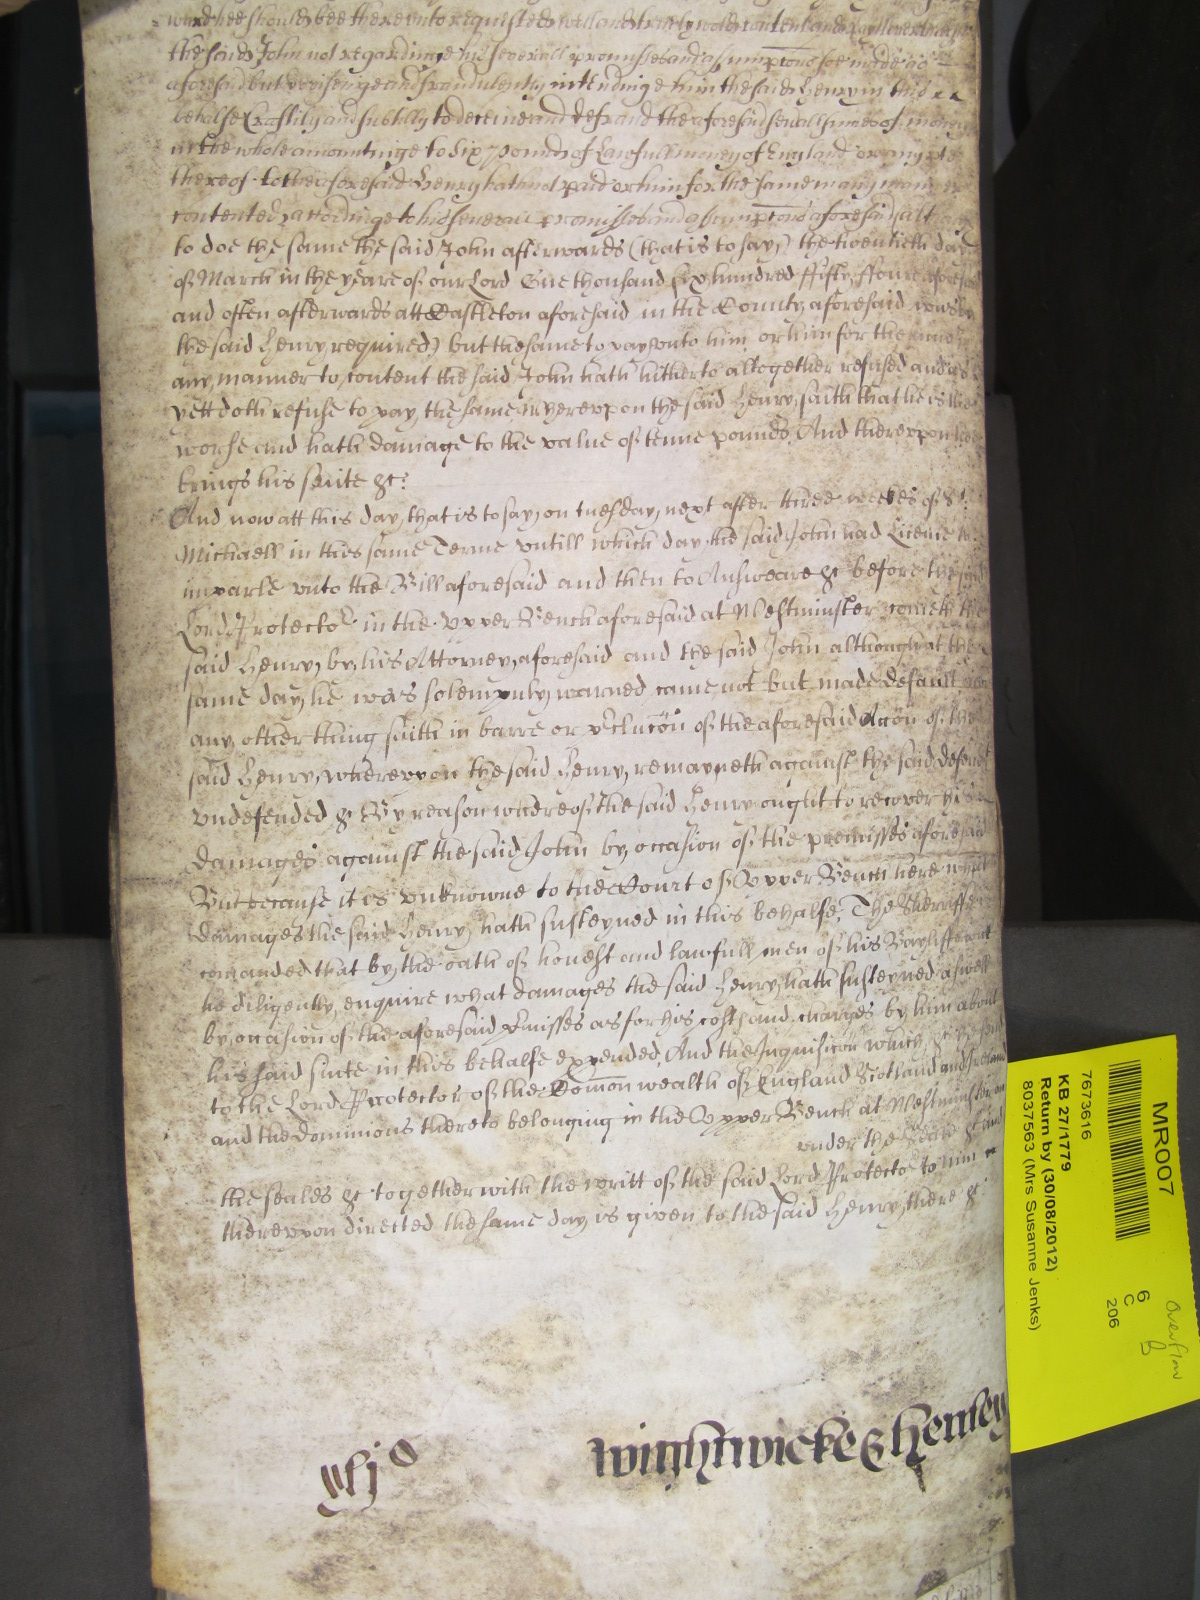 hee should bee thereunto requested well and truely would content and pay Neverthelesse
the said John not regardinge his severall promisses and assumpcons soe made as
aforesaid but devisinge and fraudulently intendinge him the said Henry in this
behalfe Craftily and subtilly to deceive and defraud the aforesaid severall sumes of money
in the whole amountinge to Six pounds of Lawfull money of England or any parte
thereof to the aforesaid Henry hath not paid or him for the same in any manner
contented accordinge to his severall promisses and assumpcons aforesaid alth
to doe the same the said John afterwards (that is to say) the twentieth day
of March in the yeare of our Lord One thousand six hundred ffifty ffoure aforesaid
and often afterwards att Castleton aforesaid in the County aforesaid
the said Henry required) but the same to pay unto him or him for the same in
any manner to content the said John hath hitherto altogether refused and as
yett doth refuse to pay the same Wherevpon the said Henry saith that he is the
worse and hath damage to the value of tenne pounds And therevpon hee
brings his suite &c:
And now att this day, that is to say, on tuesday next after three weekes of St
Michaell in this same Terme vntill which day the said John had Licence to
imparle vnto the Bill aforesaid and then to Answeare &c before the said
Lord Protector in the Vpper Bench aforesaid at Westminster cometh the
said Henry by his Attorney aforesaid and the said John although at the
same day he was solempnly warned came not but made default nor
any other thing saith in barre or preclucon of the aforesaid Accon of the
said Henry, wherevpon the said Henry remayneth against the said defend
vndefended &c By reason whereof the said Henry ought to recover his
damages against the said John by occasion of the premisses aforesaid
But because it is vnknowne to the Court of Vpper Bench here what
damages the said Henry hath susteyned in this behalfe, The Sheriffe is
comanded that by the oath of honest and lawfull men of his Bayliffewick
he diligently enquire what damages the said Henry hath susteyned aswell
by occasion of the aforesaid Pmisses as for his costs and charges by him about
his said suite in this behalfe expended, And the Inquisicon which &c
to the Lord Protector of the Comon wealth of England Scotland and Ireland
and the dominions thereto belonging in the Vpper Bench at Westminster on
under the Seale &c and
the seales &c together with the writt of the said Lord Protector to him
therevpon directed the same day is given to the said Henry there &c
Wightwicke & Henley
MR007
6
C
206
Overflow
B
7673616
KB 27/1779
Return by (30/08/2012)
8037563 (Mrs Susanne Jenks)